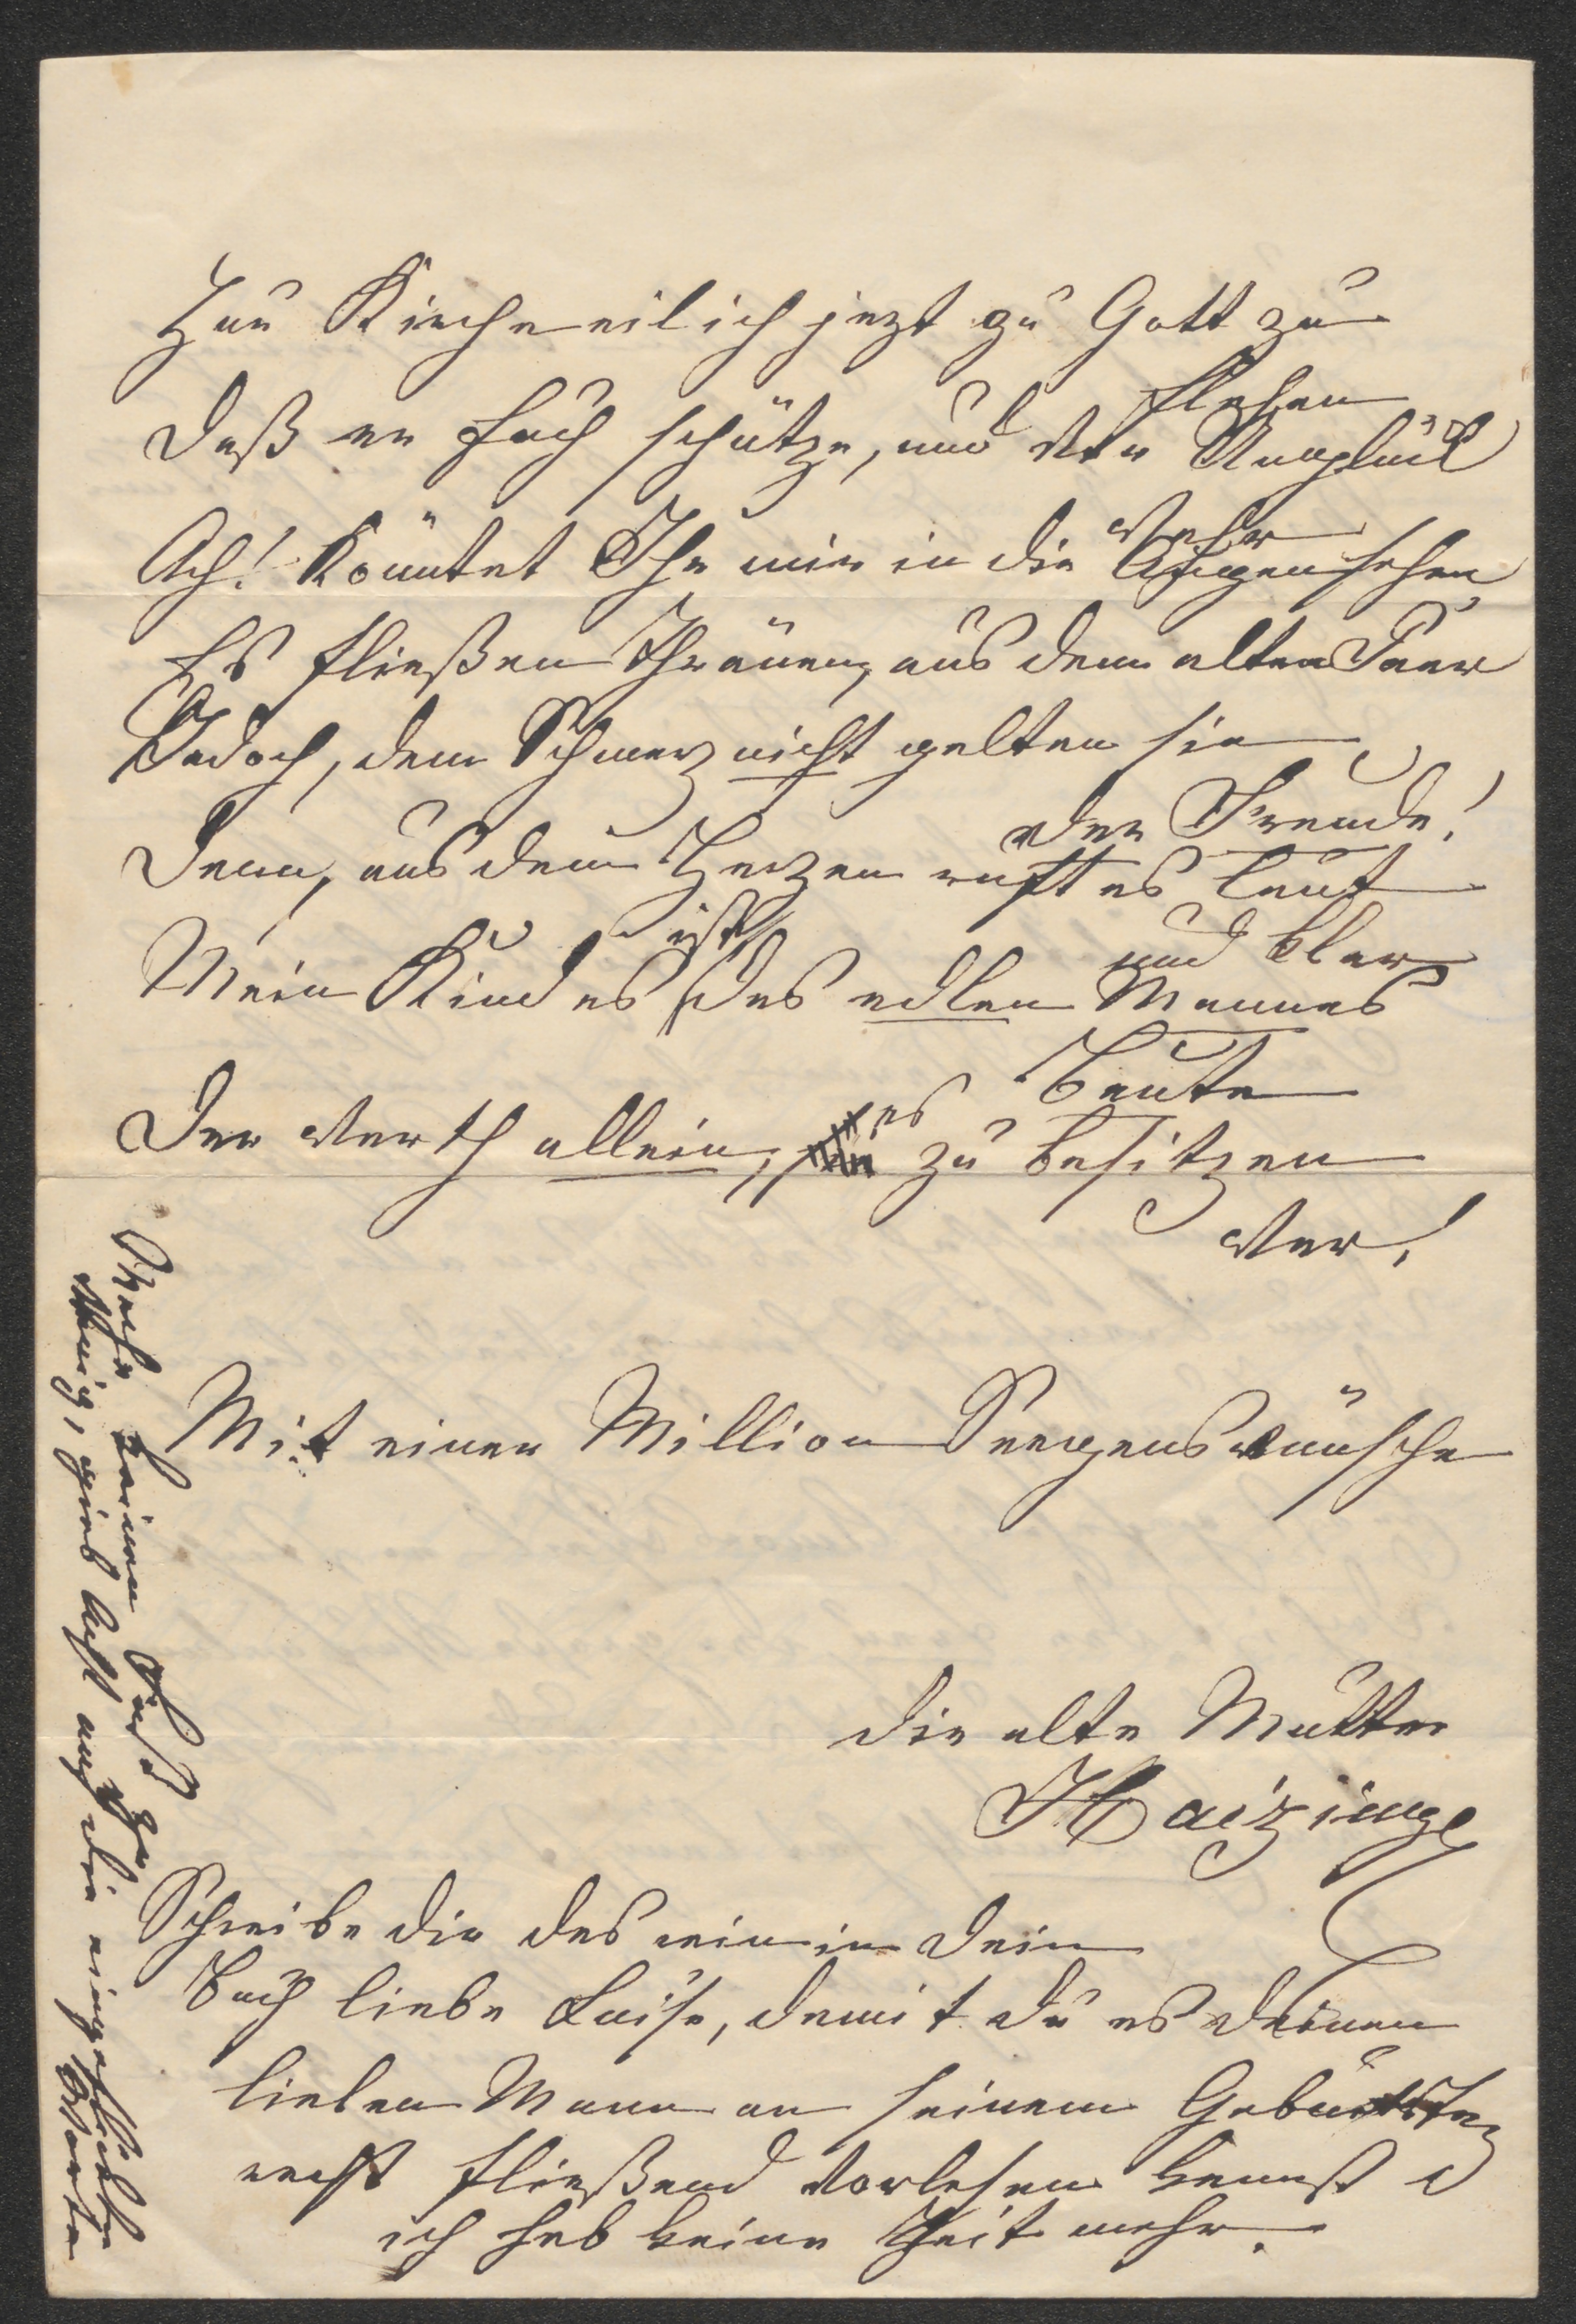 Zur Kirche eil ich jezt zu Gott zu
flehen
Daß er Euch schütze, und vor Unglück
wahr
Ach! Könntet Ihr mir in die Augen sehen,
Es fließen Thränen, aus dem alten Paar
Jedoch, dem Schmerz nicht gelten sie
der Freude!
Denn, aus dem Herzen ruft es laut
und klar
Mein Kind es ist des edlen Mannes
Beute
Der werth allein, es zu besitzen
war!
Mit einer Million Seegenswünsche
die alte Mutter
Haizinger
Schreibe dir das rein in dein
Buch liebe Luise, damit du es deinem
lieben Mann an seinem Geburtstag
recht fließend vorlesen kannst
ich hab keine Zeit mehr.
Mache keinen
wenig, gieb Acht auf die eingeflickten
Worte